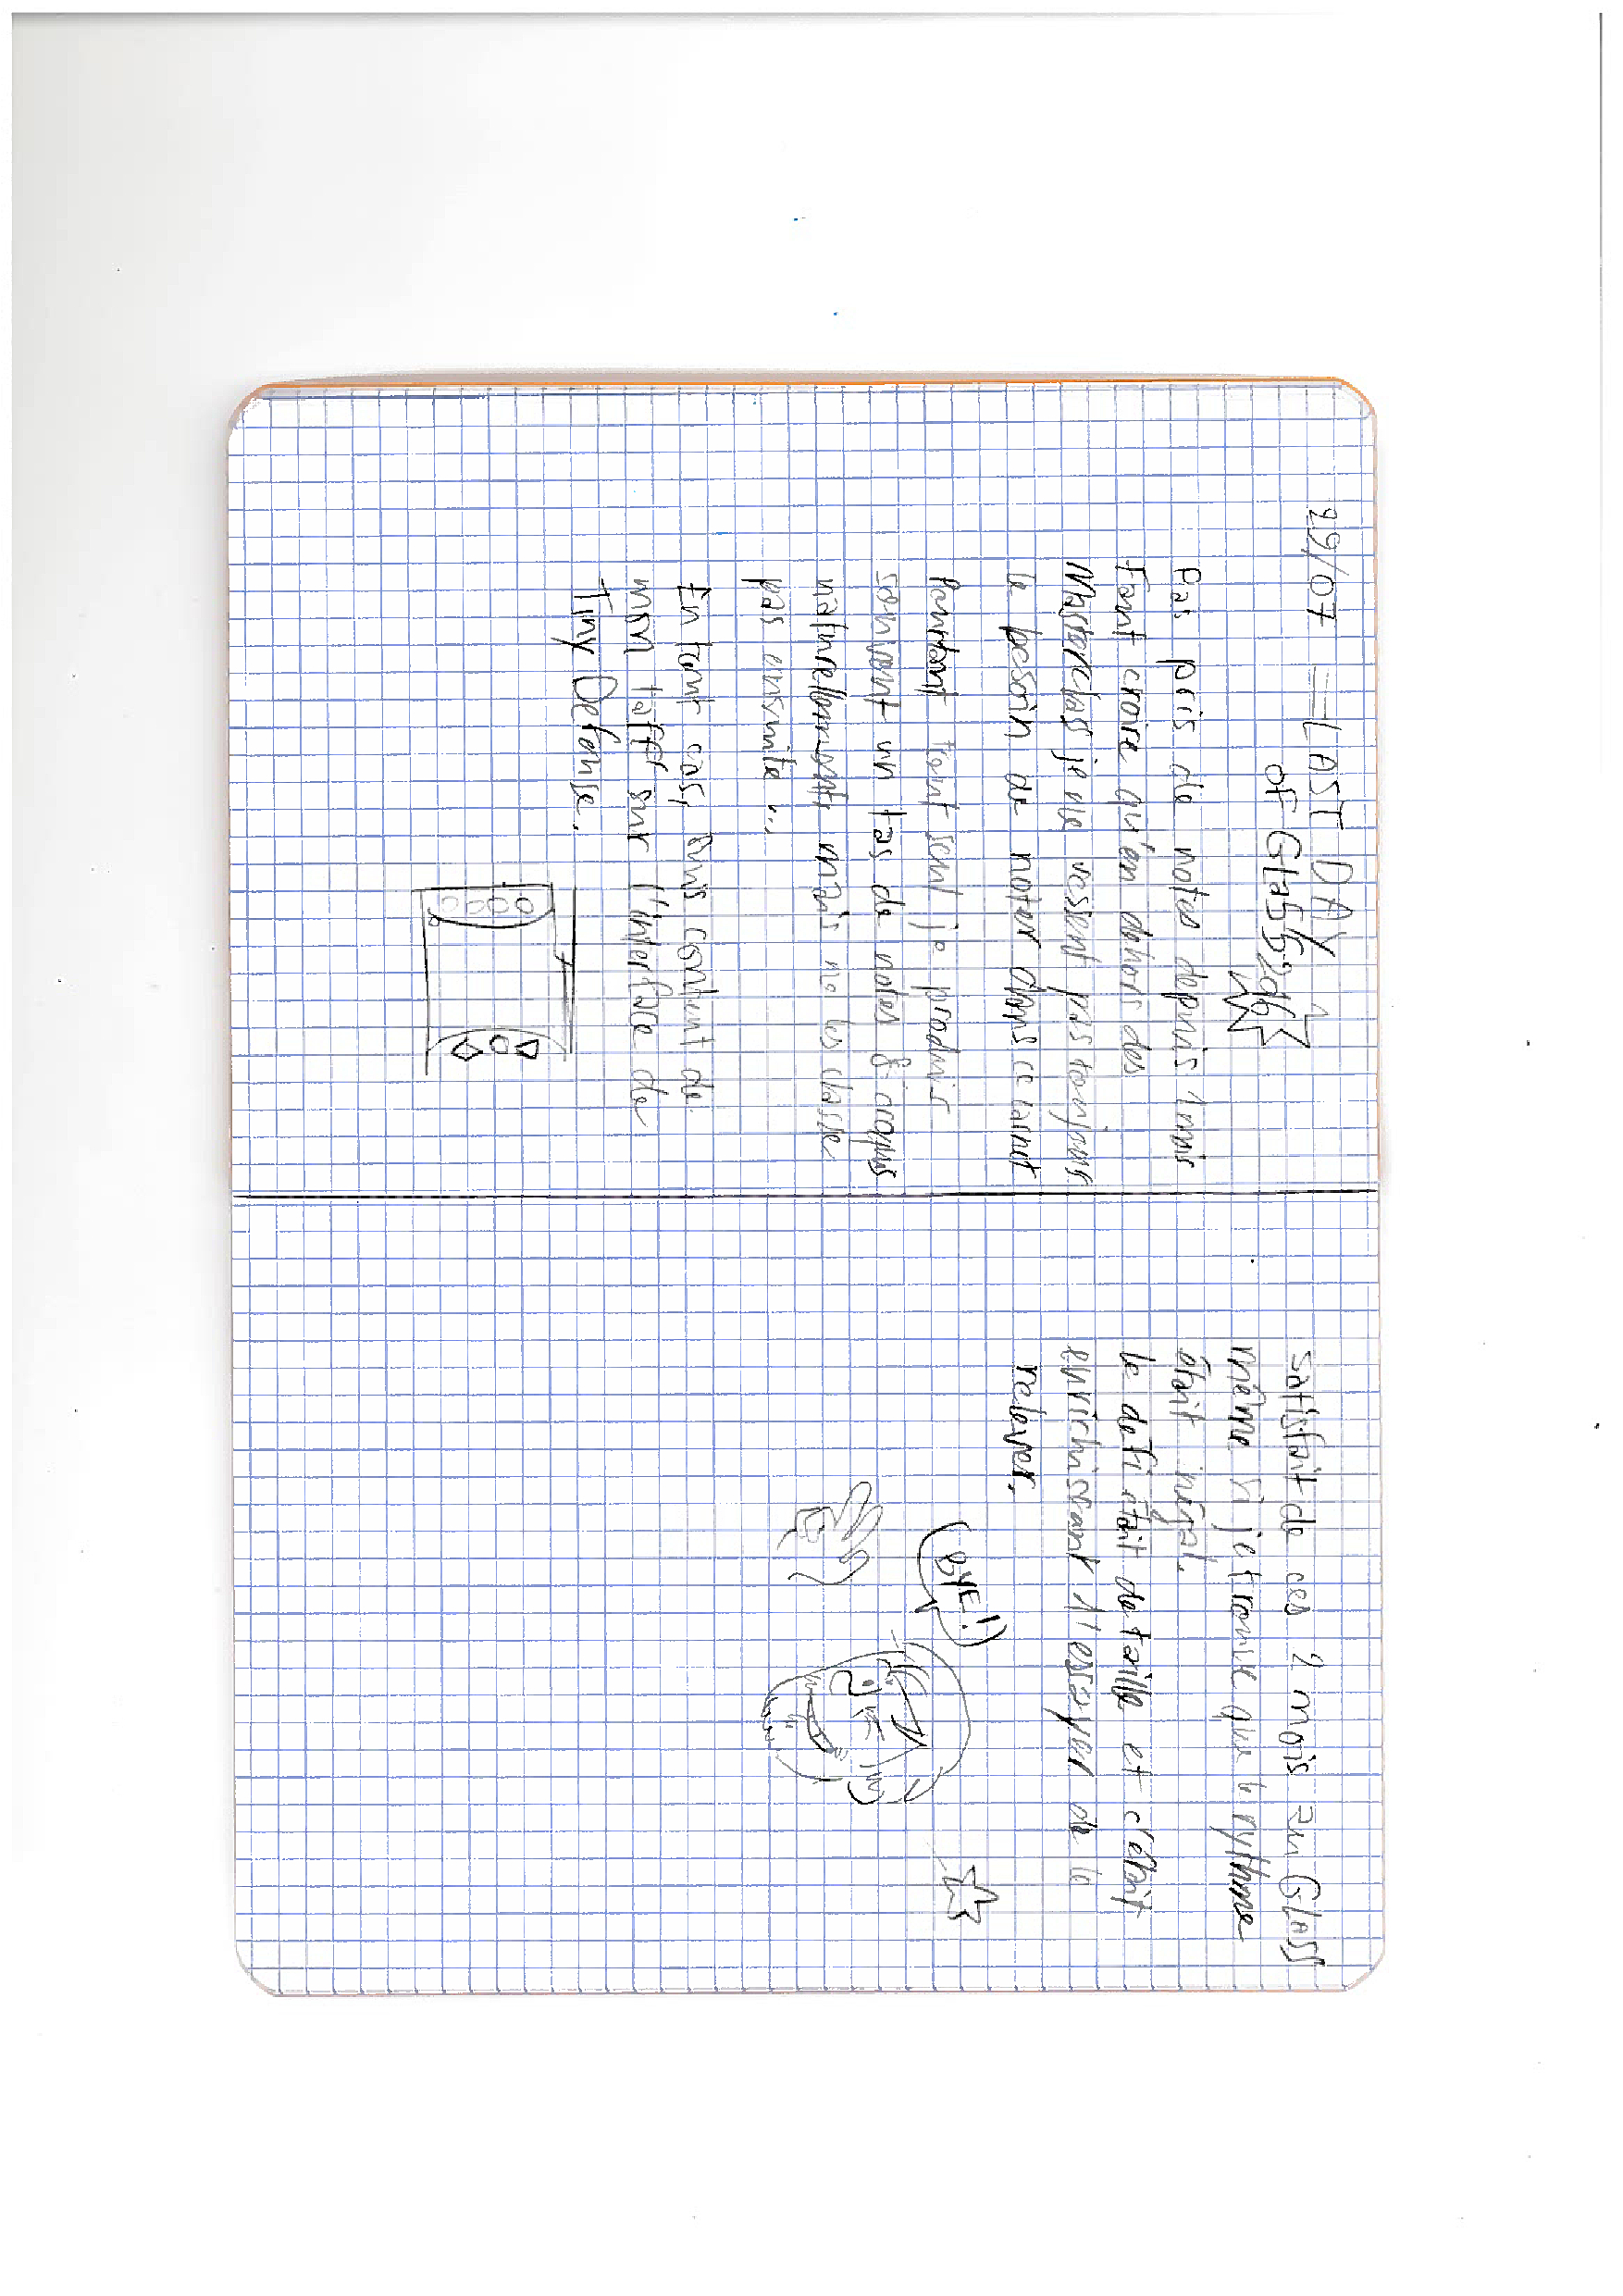 29/07 == LAST DAY
OF Glass
Pas pris de notes depuis 1 mois
Faut croire qu'en dehors des
Masterclass je me ressent pas toujours
le besoin de noter dans ce carnet
Pourtant tout seul je produis
souvent un tas de notes & croquis
naturellement, mais ne les classe
pas ensuite...
En tout cas, suis content de
mon taff sur l'interface de
Tiny Defense.
Satisfait de ces 2 mois sur Glass
même si je trouve que le rythme
était inégal.
le défi était de taille et c'était
enrichissant d'essayer de le
relever.
BYE!